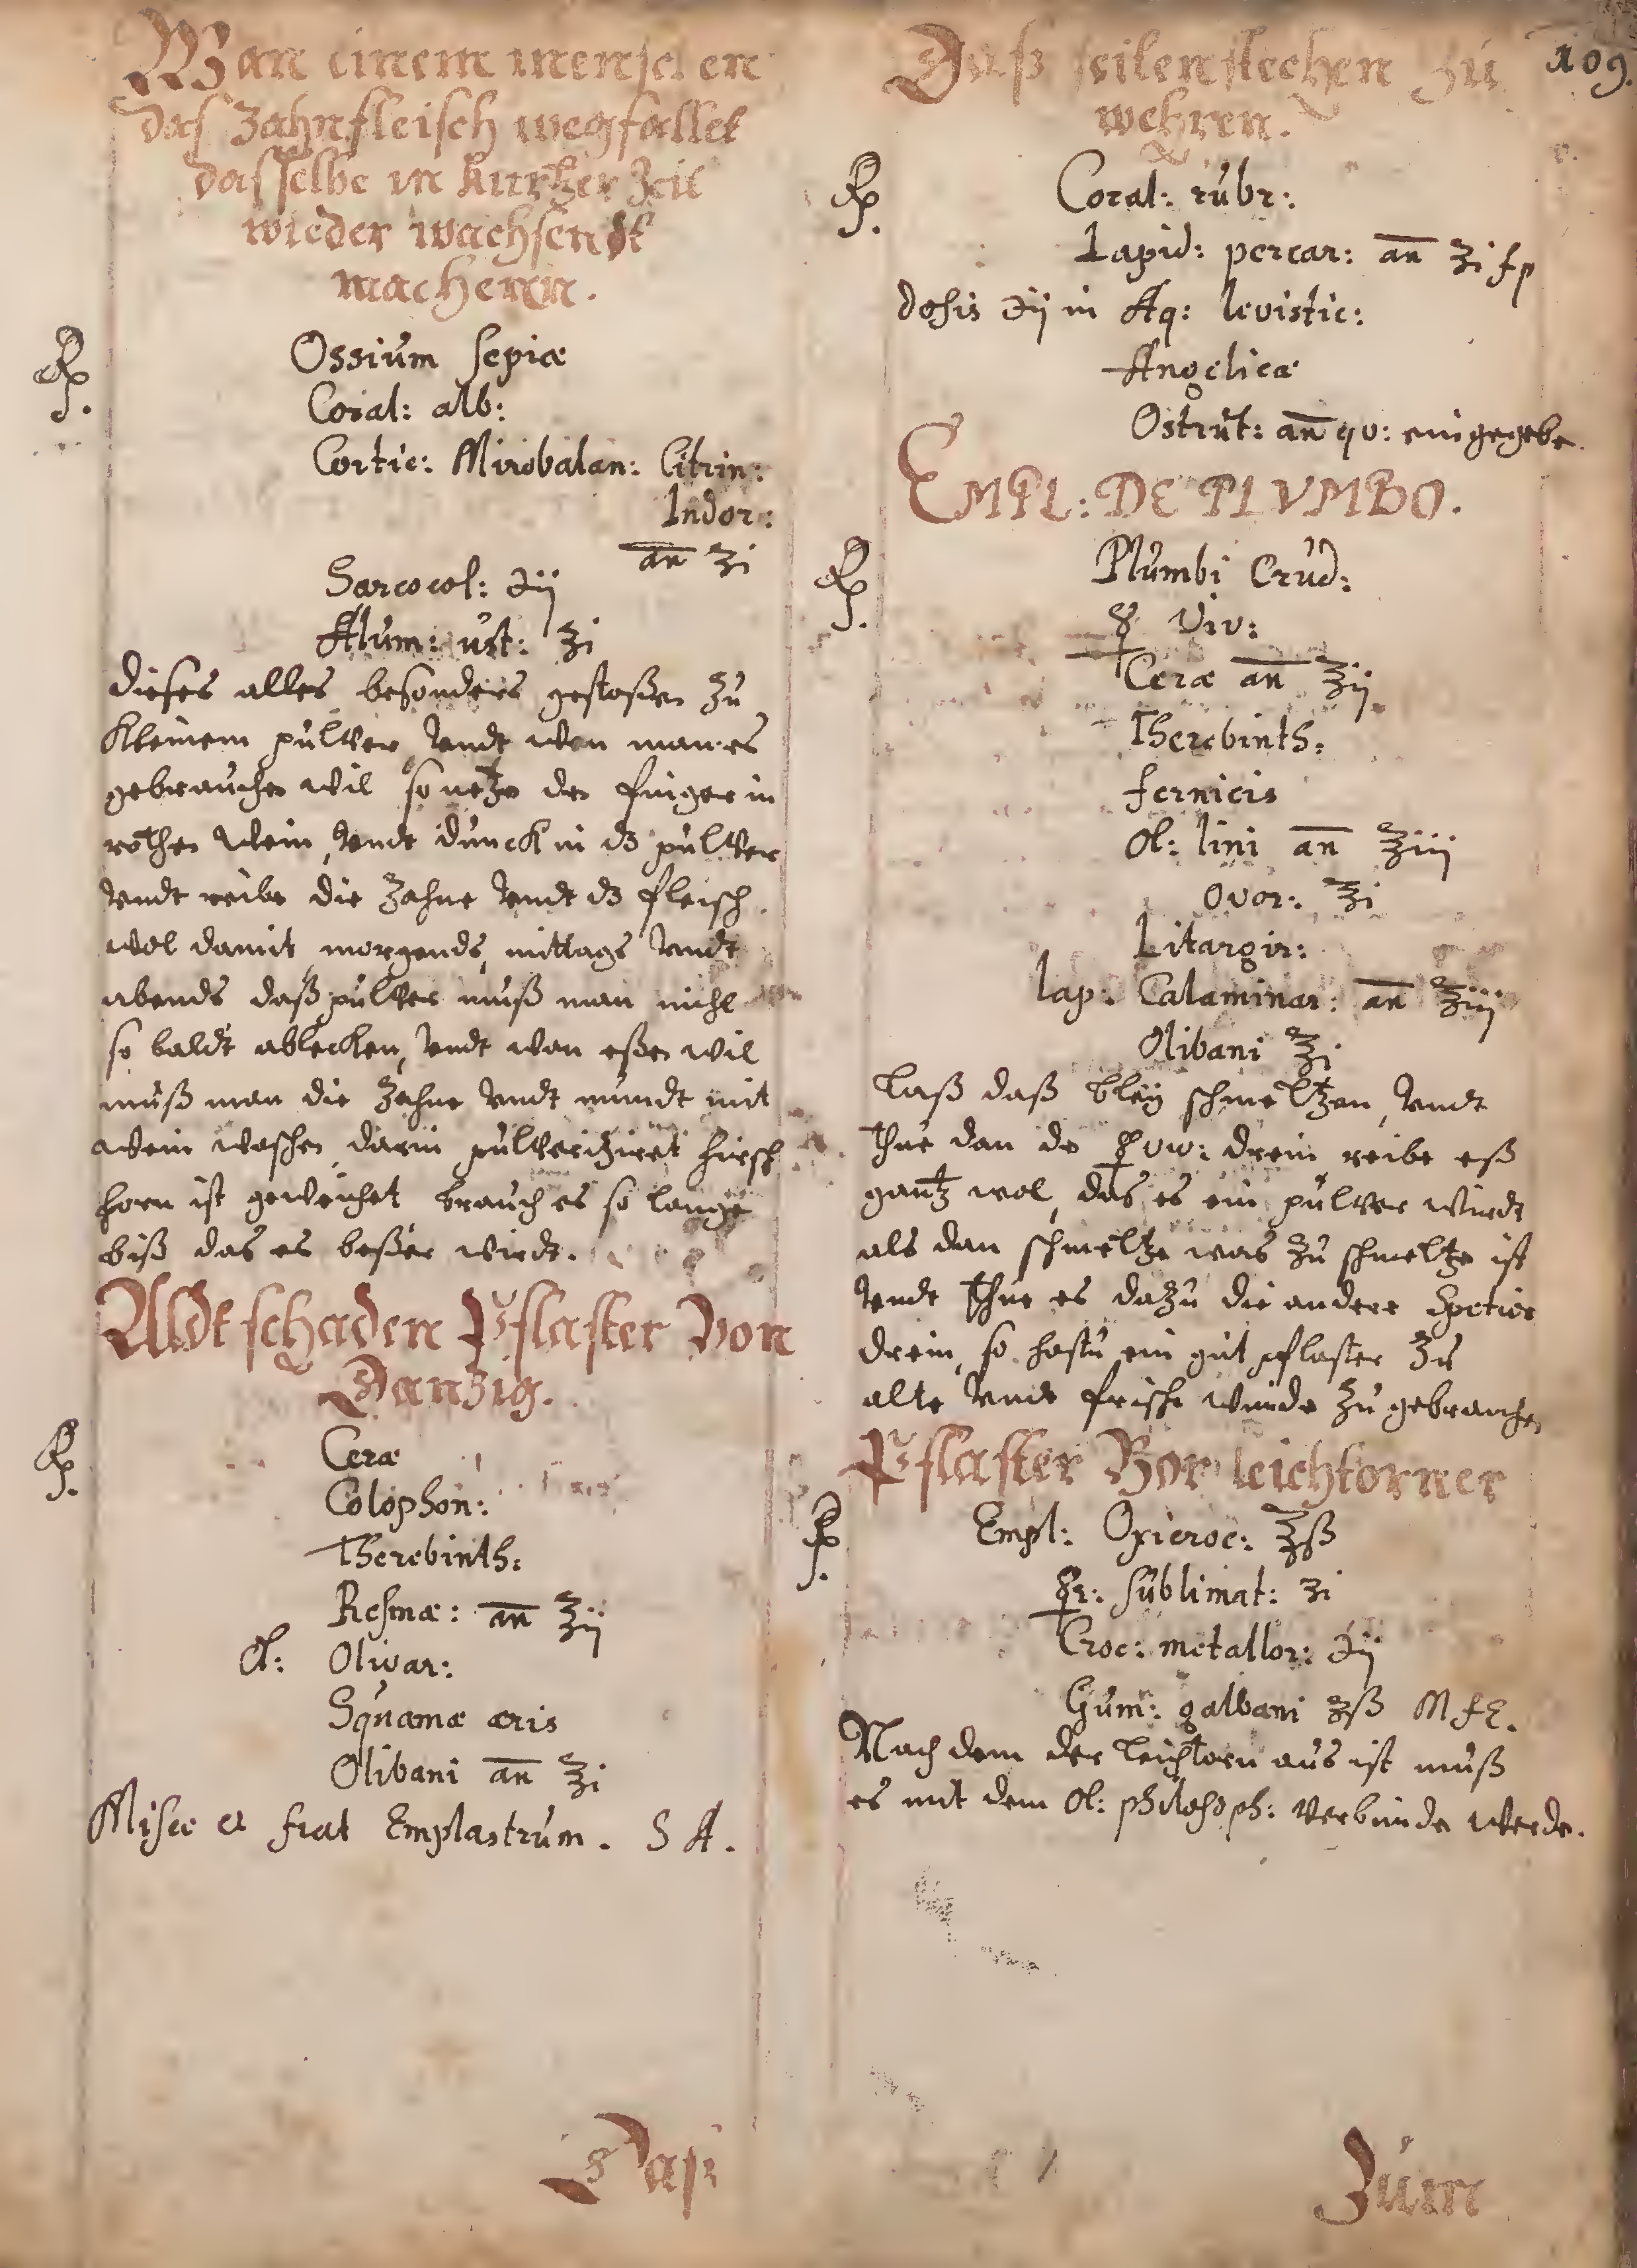 Wan einem menschen
das Zahnfleisch wegfallet
dasselbe in kurtzer Zeit
wieder wachsendt
machenn.
℞. Ossium sepiæ
Coral: alb:
Cortic: Mirobalan: Citrin:
Indor:
an ʒi
Sarcocol: ℈ij
Alum: ust: ʒi
dieses alles besonders gestoßen zu
kleinem pulver, vndt wen man es
gebrauchen wil so netze den finger in
rothen Wein, vndt dunck in dz pulver
vndt reibe die Zahne vndt dz fleisch
wol damit morgends, mittags vndt
abends daß pulver muß man nicht
so baldt ablecken, vndt wan eßen wil
muß man die Zahne vndt mundt mit
Wein waschen, darin pulveriziret hirsch
horn ist geweichet brauch es so lange
biß das es beßer wirdt.
Aldt schaden Pflaster Von
Danzig.
℞. Ceræ
Colophon:
Therebinth:
Resinæ: an ℥ij
Ol: Olivar:
Squamæ æris
Olibani an ℥i
Misce et fiat Emplastrum. S A.
Daß
109.
Daß seitenstechen zu
wehren.
℞. Coral: rubr:
Lapid: percar: an ʒi fp
dosis ℈ij in Aq: levistic:
Angelicæ
Ostrut: an qv: eingegebe.
EMPL: DE PLVMBO.
℞. Plumbi Crud:
☿ viv:
Ceræ an ℥ij
Therebinth:
fernicis
Ol: lini an ℥iij
ovor: ℥i
Litargir:
lap: Calaminar: an ℥iij
Olibani ℥i
Laß daß bleÿ schmeltzen, vndt
thue dan de ☿ viv: drein, reibe eß
gantz wol, das es ein pulver wirdt
als dan schmeltze was zu schmeltze ist
vndt thue es dazu die andere Speties
drein, so hastu ein gut pflaster zu
alte vndt frische wunde zu gebrauchen
Pflaster Vor leichtorner
℞. Empl: Oxicroc: ℥ß
☿r: sublimat: ʒi
Croc: metallor: ℈ij
Gum: galbani ʒß M f E.
Nach dem der leichtorn aus ist muß
es mit dem Ol: philosoph: verbunde werde.
Zum